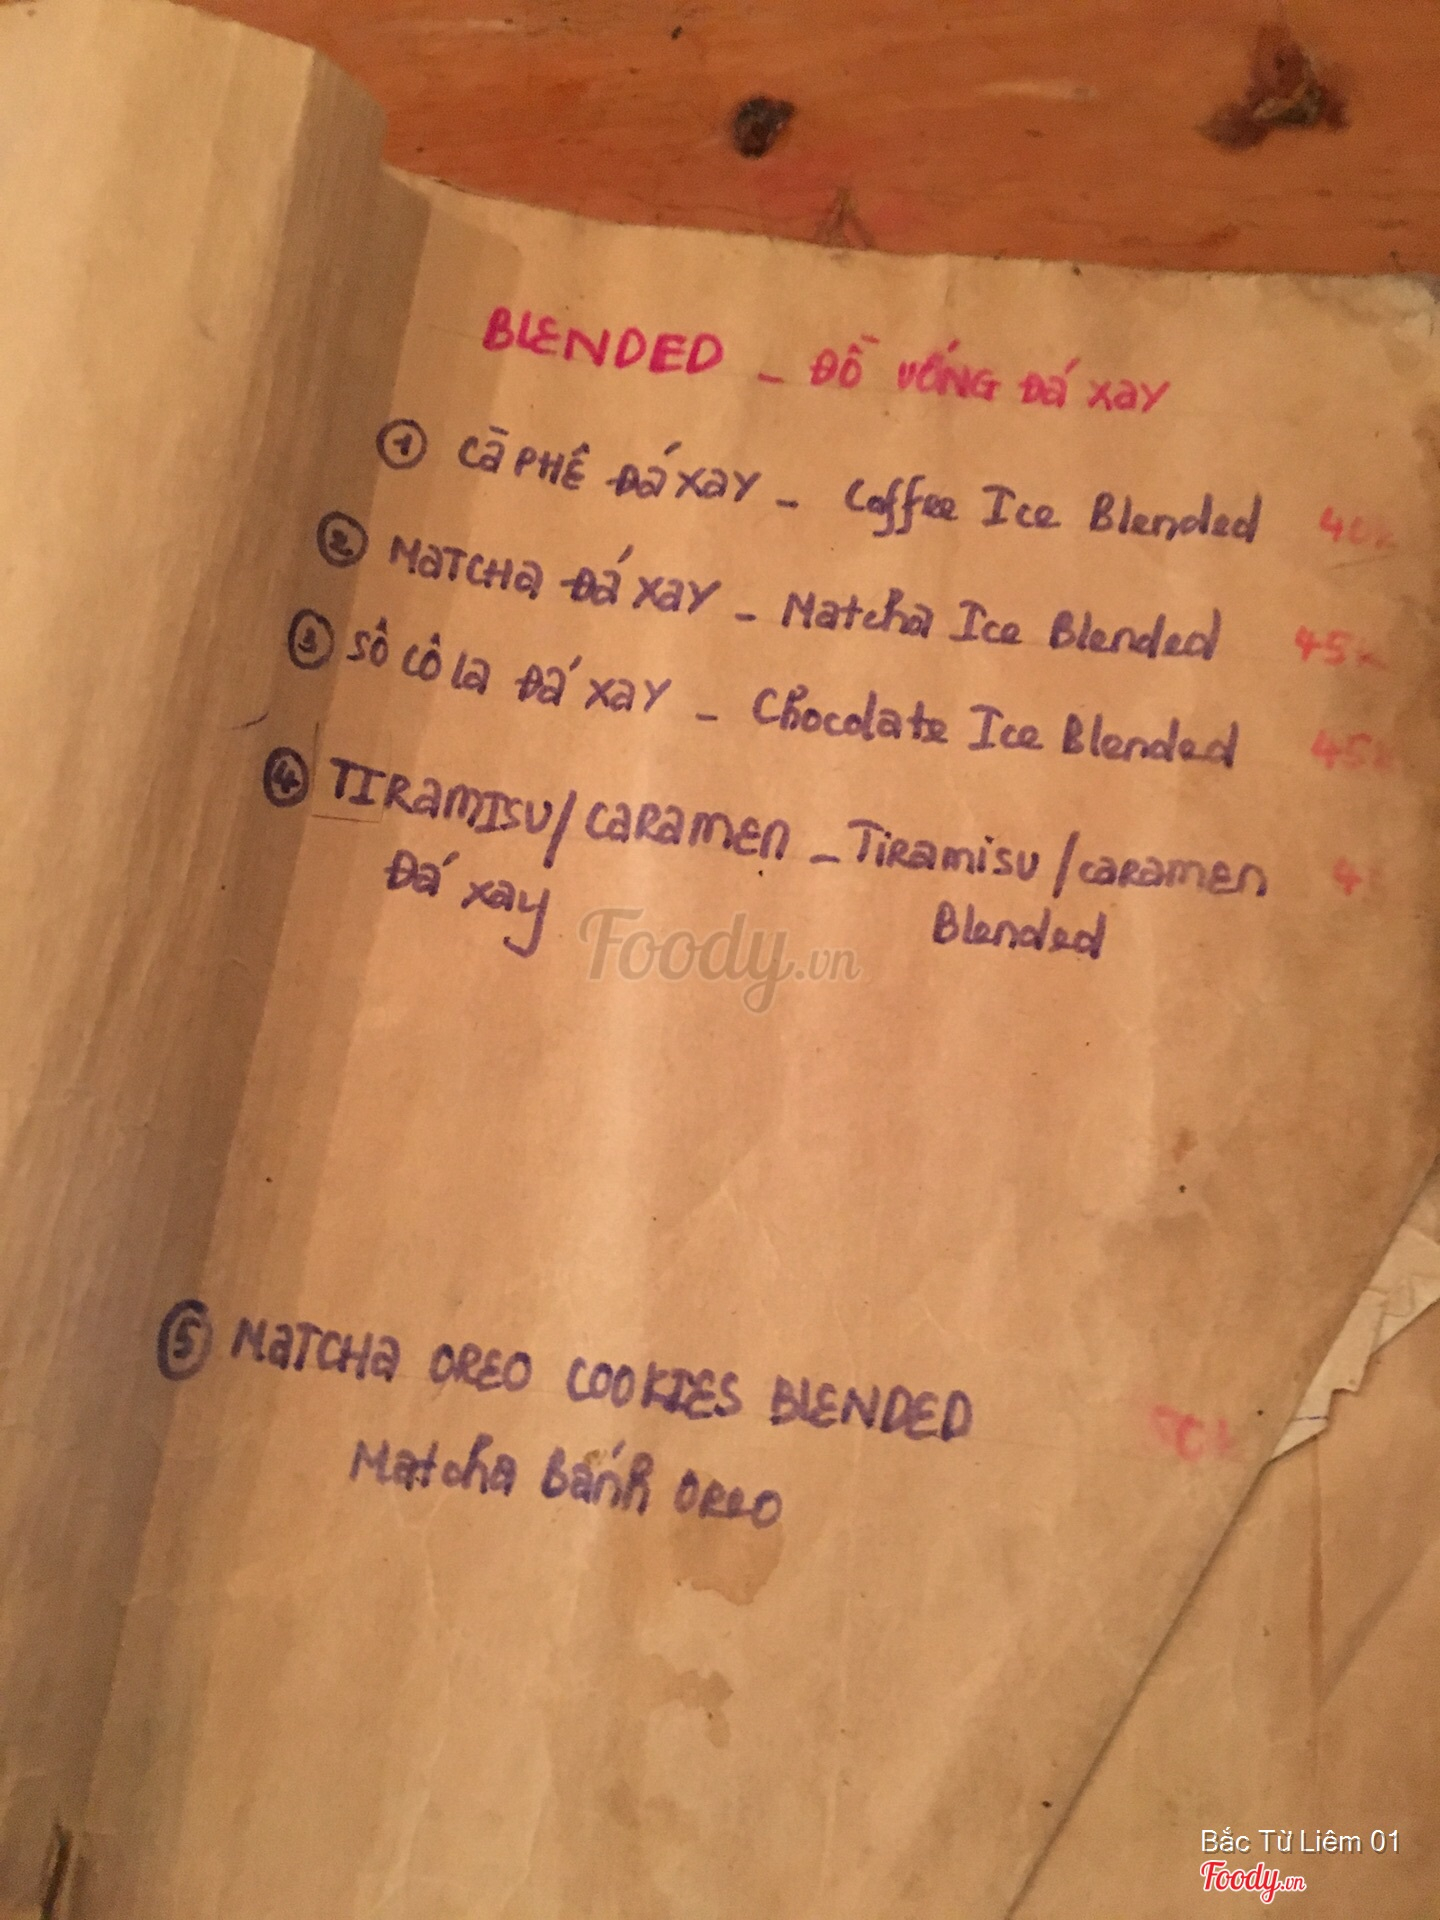 BLENDED - ĐỒ UỐNG ĐÁ XAY
① CÀ PHÊ ĐÁ XAY - Coffee Ice Blended 40k
② MATCHA ĐÁ XAY - Matcha Ice Blended 45k
③ SÔ CÔ LA ĐÁ XAY - Chocolate Ice Blended 45k
④ TIRAMISU/CARAMEN - TIRAMISU/CARAMEN
ĐÁ XAY Blended
Foody.vn
⑤ MATCHA OREO COOKIES BLENDED
Matcha Bánh OREO
Bắc Từ Liêm 01
Foody.vn